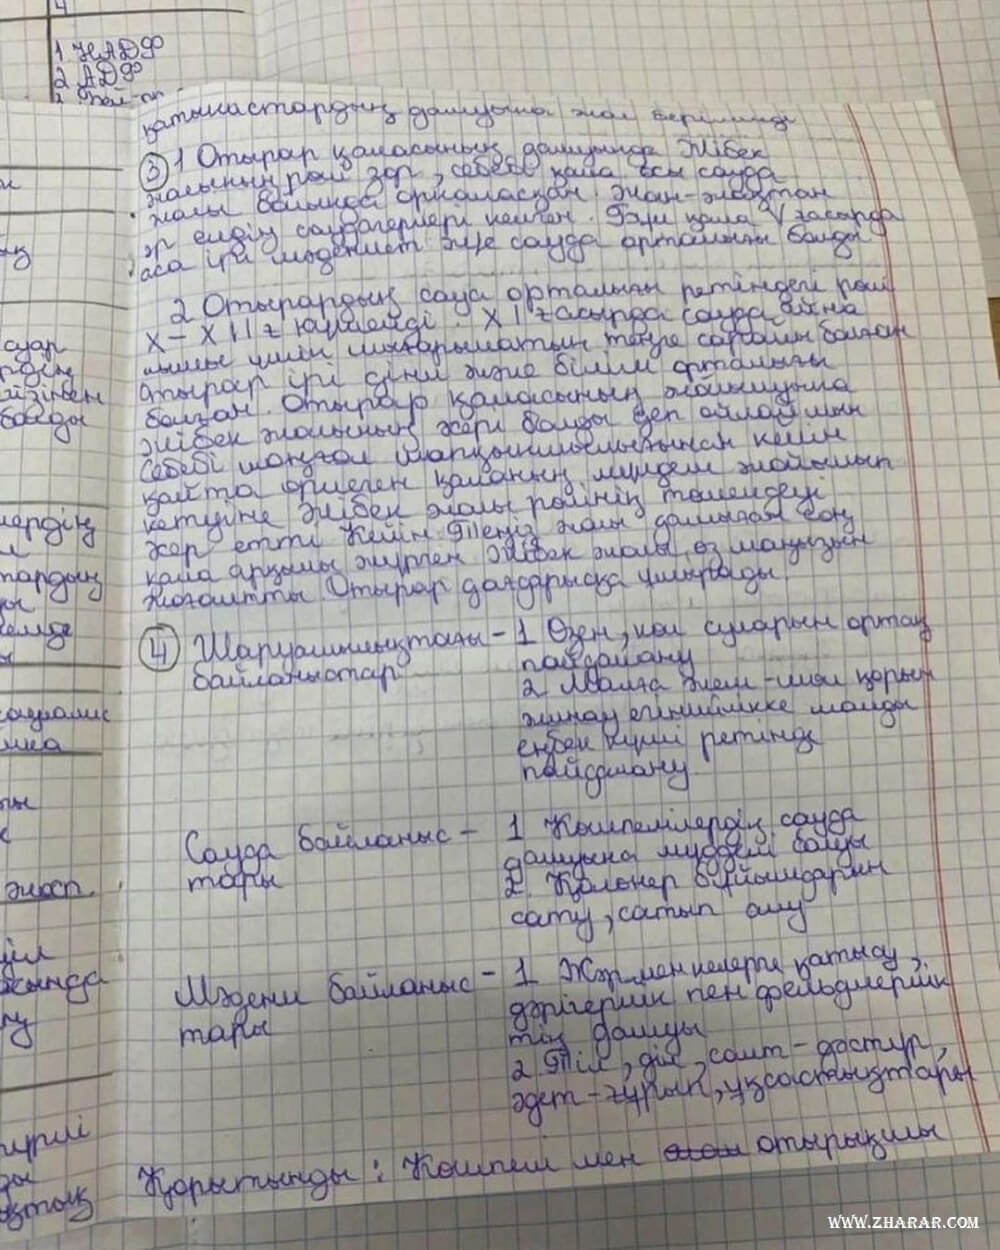 1 НАДФ
2 АДФ
қатынастардың дамуына жол берілмеді
③ 1 Отырар қаласының дамуында Жібек
жолының рөлі зор, себебі қала осы сауда
жолы бойында орналасқан. Жан-жақтан
әр елдің саудагерлері келген. Бұл қала V ғасырда
аса ірі мәдениет және сауда орталығы болды
2 Отырардың сауа орталығы ретіндегі рөлі
X - XII ғ күшейді. XII ғасырда сауда айна
лымы үшін шығарылатын теңге сарайы болған
Отырар ірі діни және білім орталығы
болған. Отырар қаласының жойылуына
Жібек жолының әсері болды деп ойлаймын
Себебі моңғол шапқыншылығынан кейін
қайта өрлеген қаланың мүлдем жойылып
кетуіне Жібек жолы рөлінің төмендеуі
әсер етті Кейін Теңіз жолы дамыған соң
қала арқылы жүрген Жібек жолы өз маңызын
жоғалтты. Отырар дағдарысқа ұшырады.
④ Шаруашылықтағы - 1 Өзен, көл суларын ортақ
байланыстар пайдалану
2 Малға жем-шөп қорын
жинау егіншілікке малды
еңбек күші ретінде
пайдалану
Сауда байланыс - 1 Көшпелілердің сауда
тары дамуына мүдделі болуы
2. Қолөнер бұйымдарын
сату, сатып алу
Мәдени байланыс - 1 Жәрмеңкелерге қатысу,
тары дәрігерлік пен фельдшерлік
тің дамуы
2 Тіл, діл, салт-дәстүр,
әдет-ғұрып, ұқсастықтары
Қорытынды: Көшпелі мен отырықшы
WWW.ZHARAR.COM